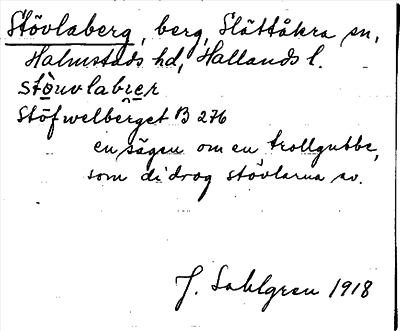 Stövlaberg, berg, Slättåkra sn,
Halmstads hd, Hallands l.
stòuvlabræer
Stöfwelberget B 276
en sägen om en trollgubbe,
som de drog stövlarna av.
J. Sahlgren 1918